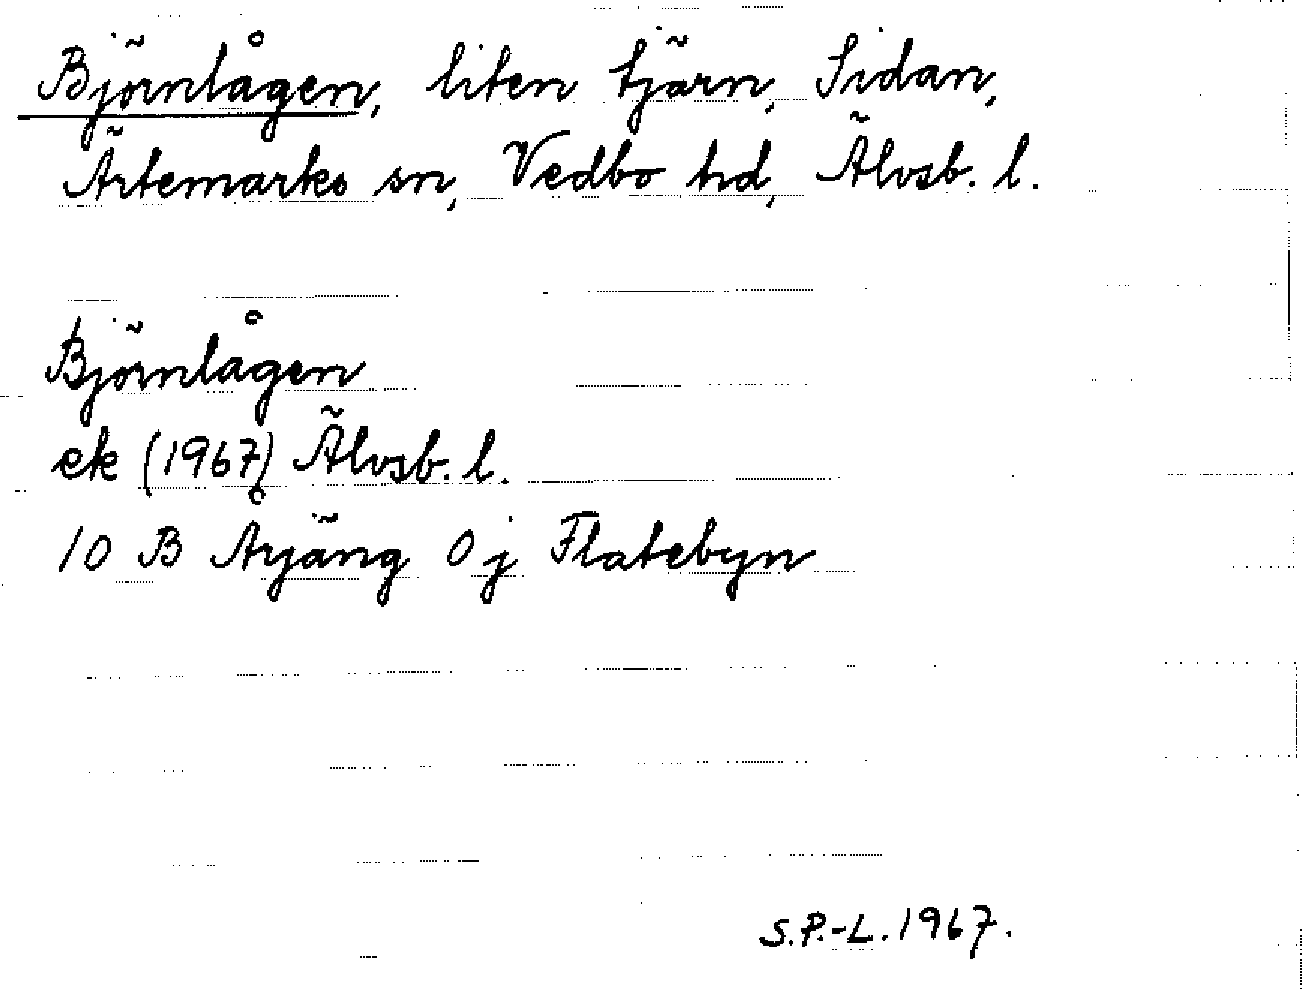 Björnlågen, liten tjärn, Sidan,
Ärtemarks sn, Vedbo hd, Älvsb. l.
Björnlågen
ek (1967) Älvsb. l.
10 B Årjäng 0 j Flatebyn
S.P.-L. 1967.